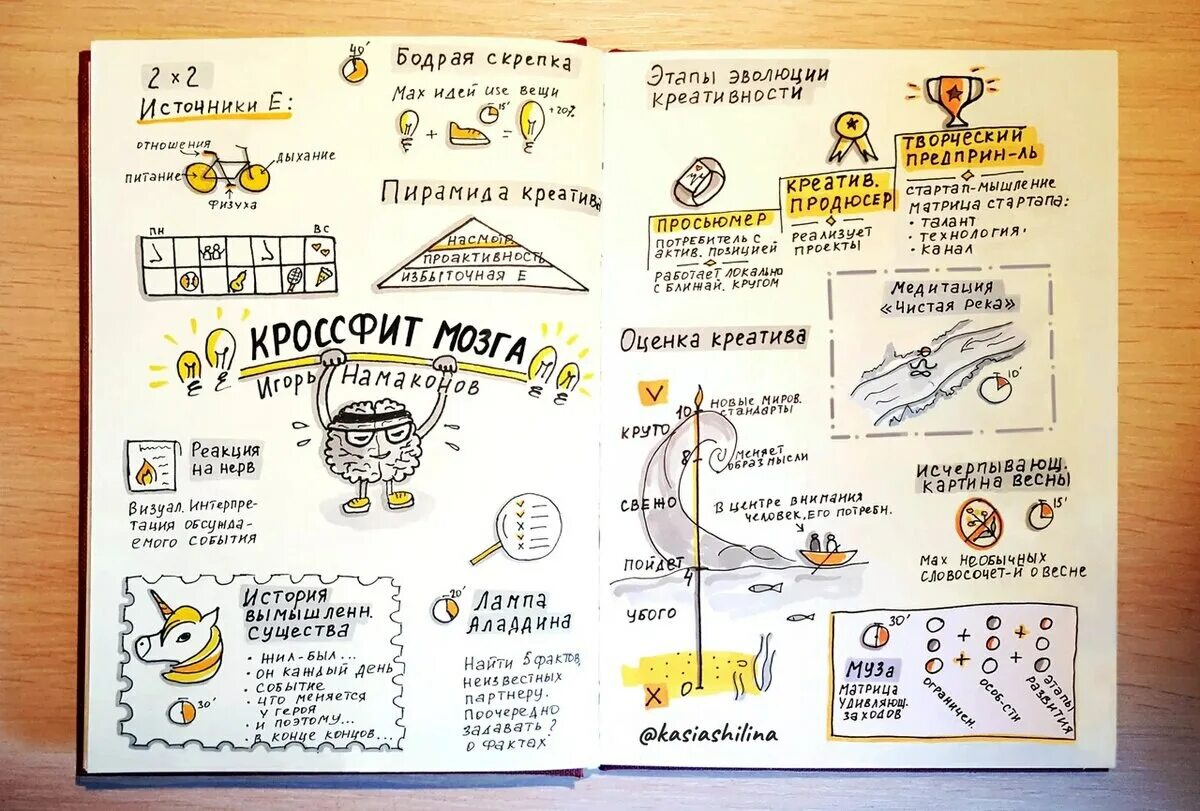 2 x 2
Источники Е:
отношения
дыхание
питание
физуха
пн
вс
40'
Бодрая скрепка
Max идей use вещи
15'
+
=
+20%
Пирамида креатива
насмотр.
проактивность
избыточная Е
КРОССФИТ МОЗГА
Игорь Намаконов
Реакция
на нерв
Визуал. Интерпре-
тация обсужда-
емого события
История
вымышленн.
существа
• жил-был...
• он каждый день
• событие
• что меняется
у героя
• и поэтому...
• в конце концов...
30'
20'
Лампа
Аладдина
Найти 5 фактов,
неизвестных
партнеру.
Поочередно
задавать ?
о фактах.
Этапы эволюции
креативности
ПРОСЬЮМЕР
потребитель с
актив. позицией
Работает локально
с ближай. кругом
КРЕАТИВ.
ПРОДЮСЕР
реализует
проекты
ТВОРЧЕСКИЙ
ПРЕДПРИН-ЛЬ
стартап-мышление
матрица стартапа:
• талант
• технология
• канал
Медитация
«Чистая река»
10'
Оценка креатива
V
10
новые миров.
стандарты
КРУТО
8
меняет
образ мысли
СВЕЖО
в центре внимания
человек, его потребн.
ПОЙДЕТ
4
УБОГО
X
0
@kasiashilina
Исчерпывающ.
картина весны
15'
Max необычных
словосочет-й о весне
30'
Муза
матрица
удивляющ.
заходов
+ +
+ +
ограничен.
особ-сти
этапы
развития